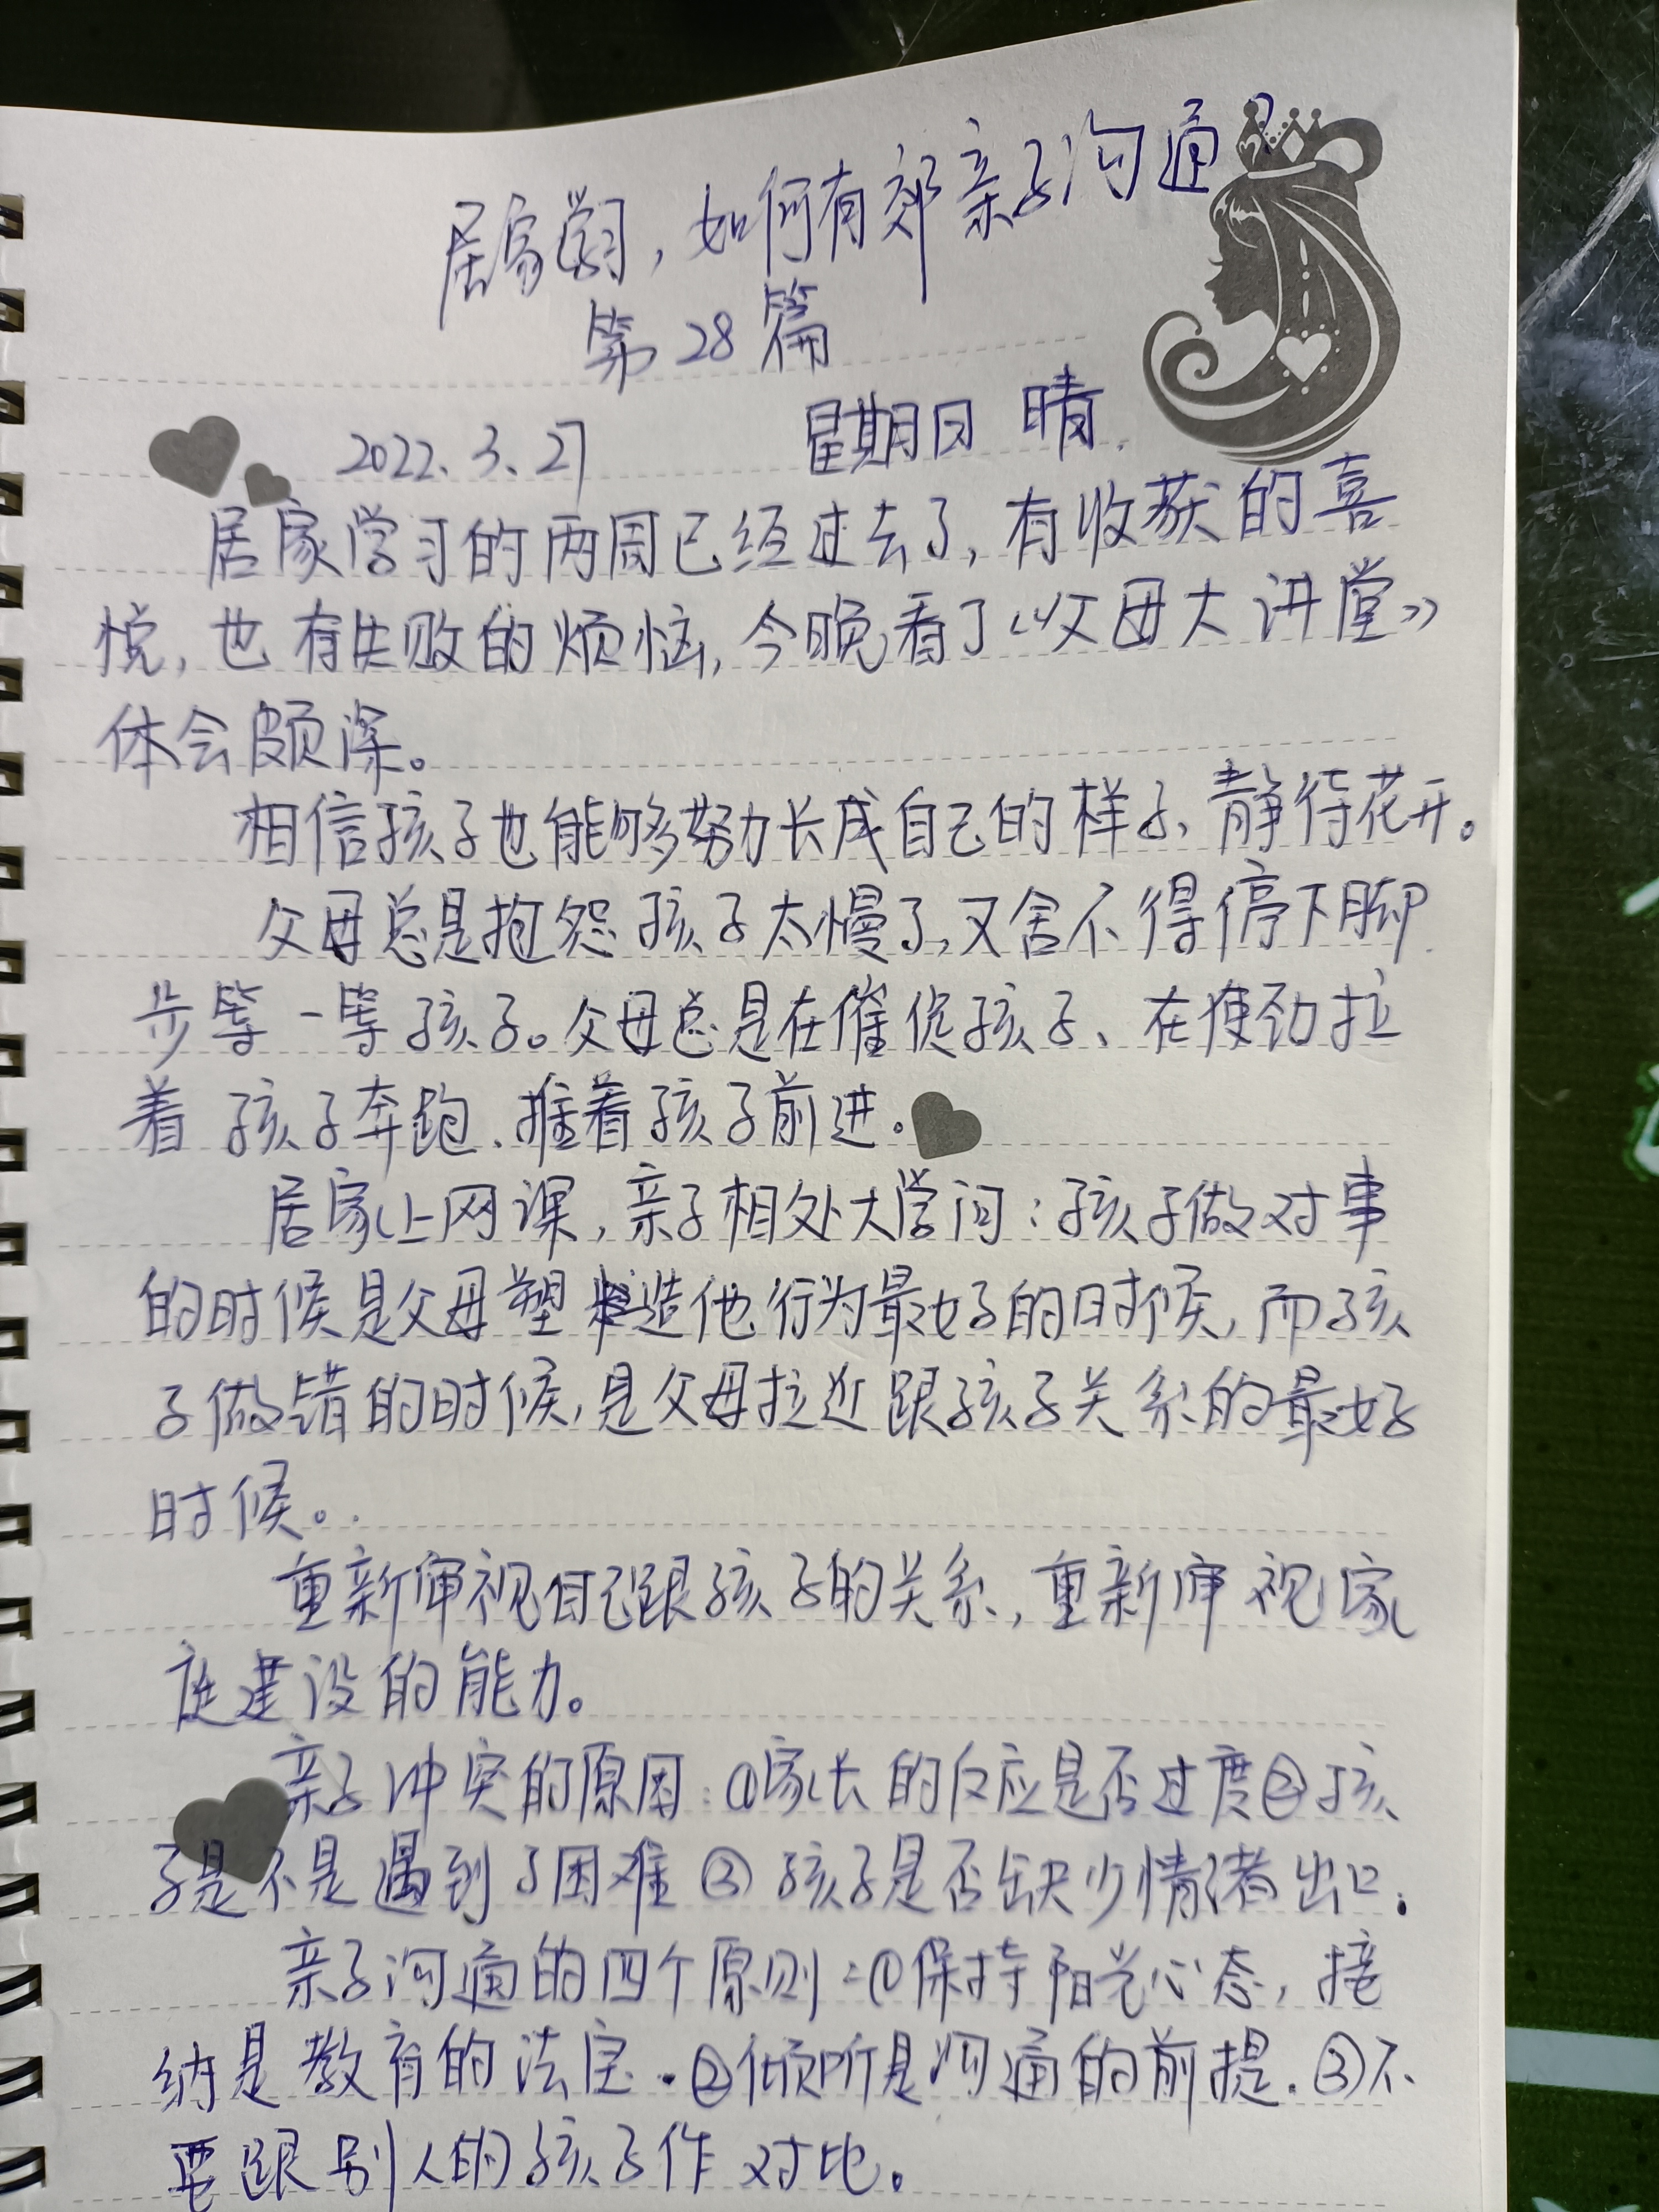 居家学习，如何有效亲子沟通？
第28篇
2022.3.27 星期日 晴.
居家学习的两周已经过去了，有收获的喜
悦，也有失败的烦恼，今晚看了《父母大讲堂》
体会颇深。
相信孩子也能够努力长成自己的样子、静待花开。
父母总是抱怨孩子太慢了，又舍不得停下脚
步等一等孩子。父母总是在催促孩子、在使劲拉
着孩子奔跑、推着孩子前进。
居家上网课，亲子相处大学问：孩子做对事
的时候是父母塑造他行为最好的时候，而孩
子做错的时候，是父母拉近跟孩子关系的最好
时候。
重新审视自己跟孩子的关系，重新审视家
庭建设的能力。
亲子冲突的原因：①家长的反应是否过度②孩
子是不是遇到了困难③孩子是否缺少情绪出口.
亲子沟通的四个原则：①保持阳光心态，接
纳是教育的法宝.②倾听是沟通的前提.③不
要跟别人的孩子作对比。